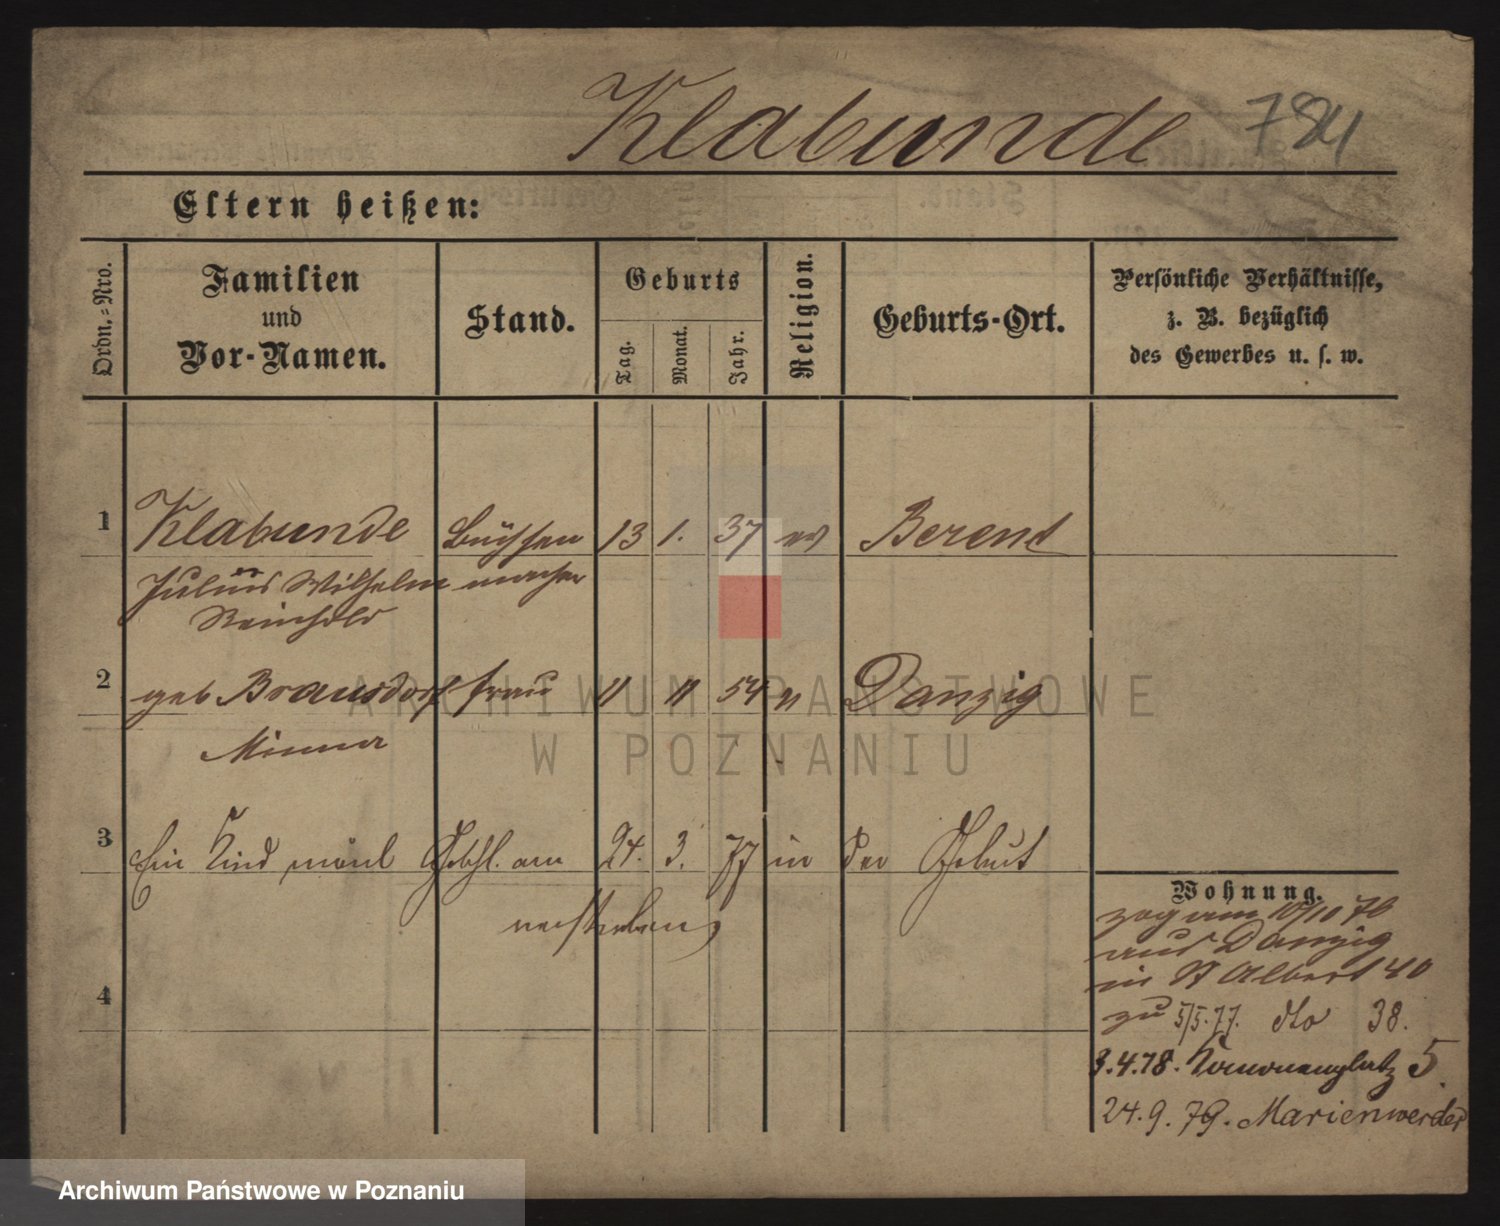 Klabunde 784
Eltern heißen:
Ordn.-Nro.
Familien
und
Vor-Namen.
Stand.
Geburts
Tag.
Monat.
Jahr.
Religion.
Geburts-Ort.
Persönliche Verhältnisse,
z. B. bezüglich
des Gewerbes u. s. w.
1 Klabunde Büchsen 13 1. 37 ev Berent
Julius Wilhelm macher
Reinhold
2 geb Bransdorf frau 11 11 54 " Danzig
Minna
3 Ein Kind mänl Geschl. am 24. 3. 77 in der Geburt
verstorben,
4
Wohnung.
zog am 10/10 76
aus Danzig
in St Albert 40
zu 5/5.77. dto 38.
3.4.78. Kanonenplatz 5.
24.9.79. Marienwerder
ARCHIWUM PAŃSTWOWE
W POZNANIU
Archiwum Państwowe w Poznaniu